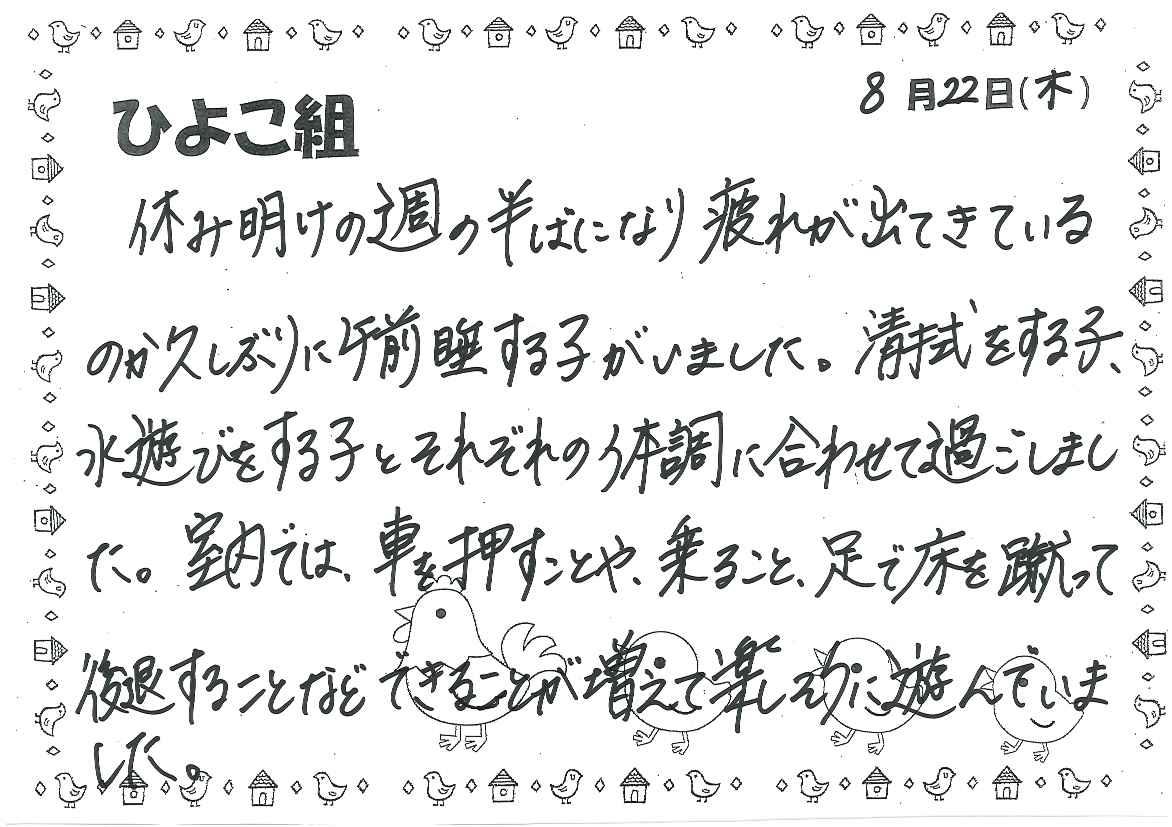 ひよこ組
8月22日(木)
休み明けの週の半ばになり疲れが出てきている
のか久しぶりに午前睡する子がいました。清拭をする子、
水遊びをする子とそれぞれの体調に合わせて過ごしまし
た。室内では、車を押すことや、乗ること、足で床を蹴って
後退することなどできることが増えて楽しそうに遊んでいま
した。